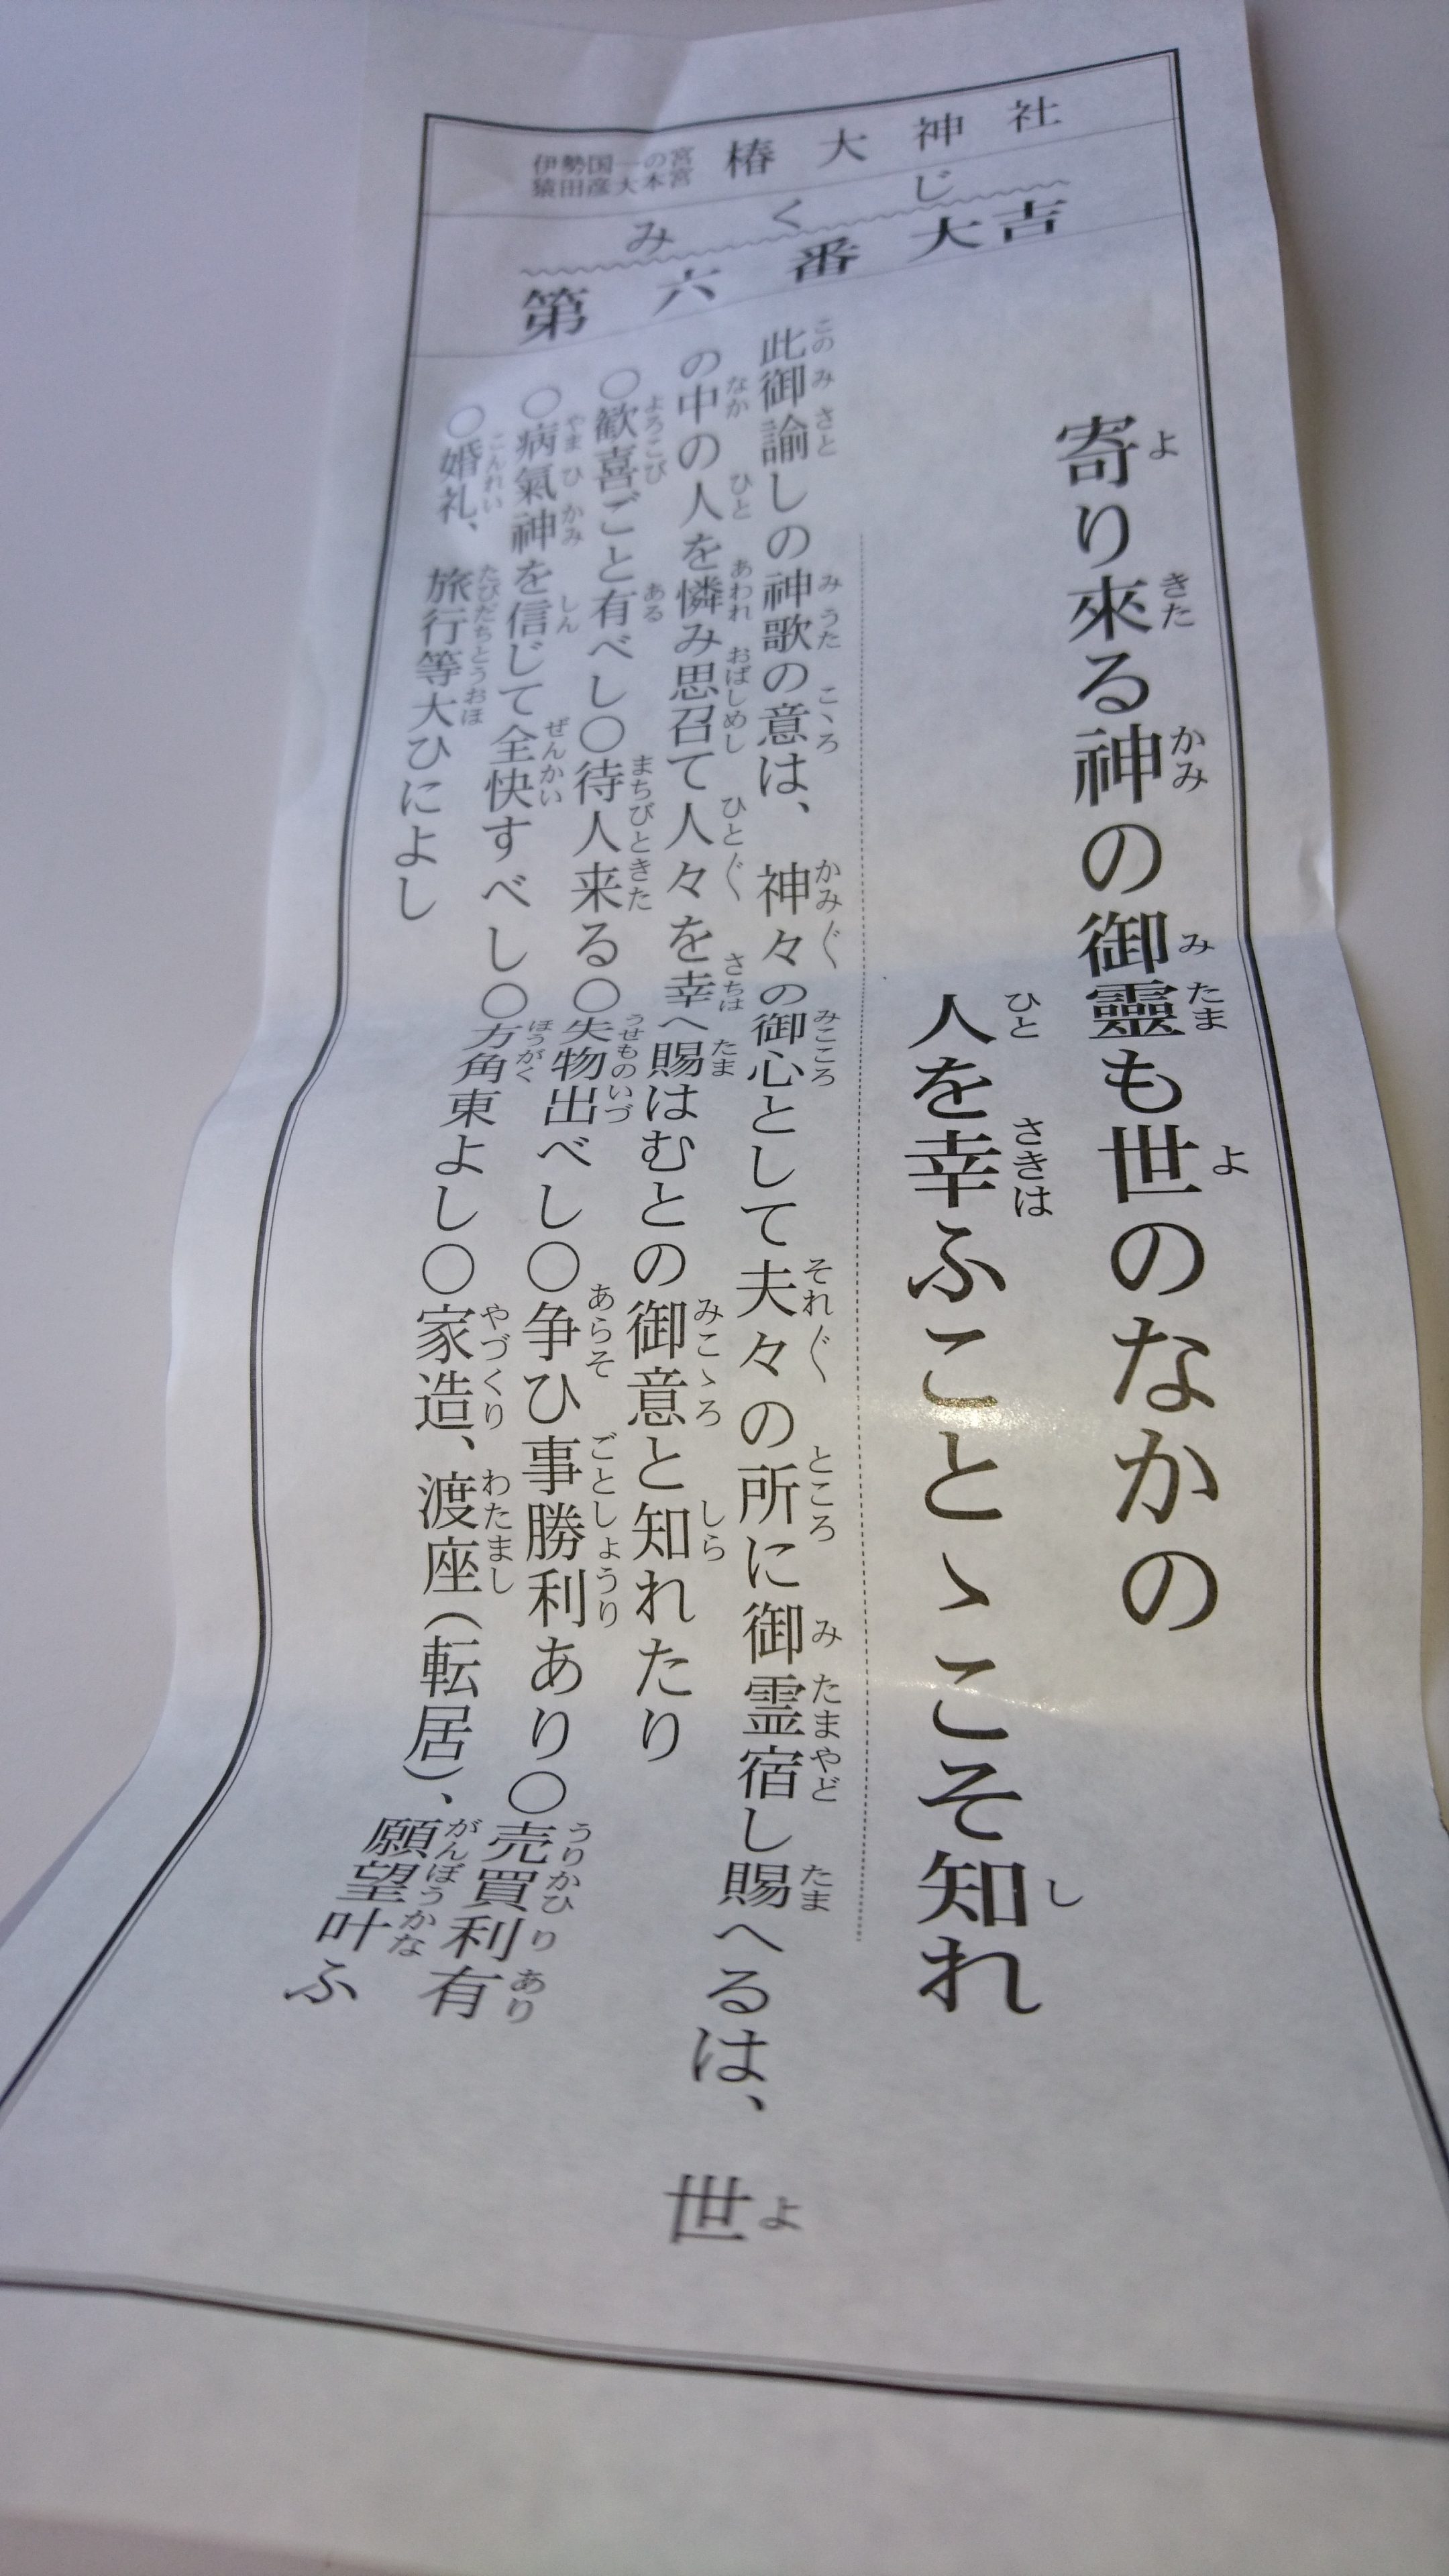 伊勢国一の宮
猿田彦大本宮
椿大神社
みくじ
第六番 大吉
寄り來る神の御靈も世のなかの
人を幸ふことゝこそ知れ
此御諭しの神歌の意は、神々の御心として夫々の所に御霊宿し賜へるは、世
の中の人を憐み思召て人々を幸へ賜はむとの御意と知れたり
○歓喜ごと有べし○待人来る○失物出べし○争ひ事勝利あり○売買利有
○病氣神を信じて全快すべし○方角東よし○家造、渡座(転居)、願望叶ふ
○婚礼、旅行等大ひによし